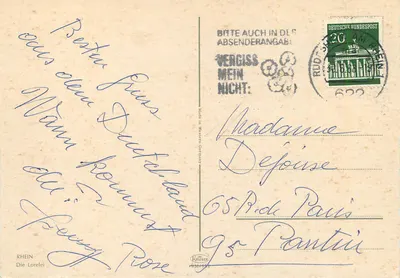 Besten Gruss
aus dem Deutschland
Wann kommst
du?
Rose
RHEIN
Die Loreley
BITTE AUCH IN DER
ABSENDERANGABE
VERGISS
MEIN
NICHT:
20
622
Madame
Dejouse
65 R. de Paris
95 Pantin